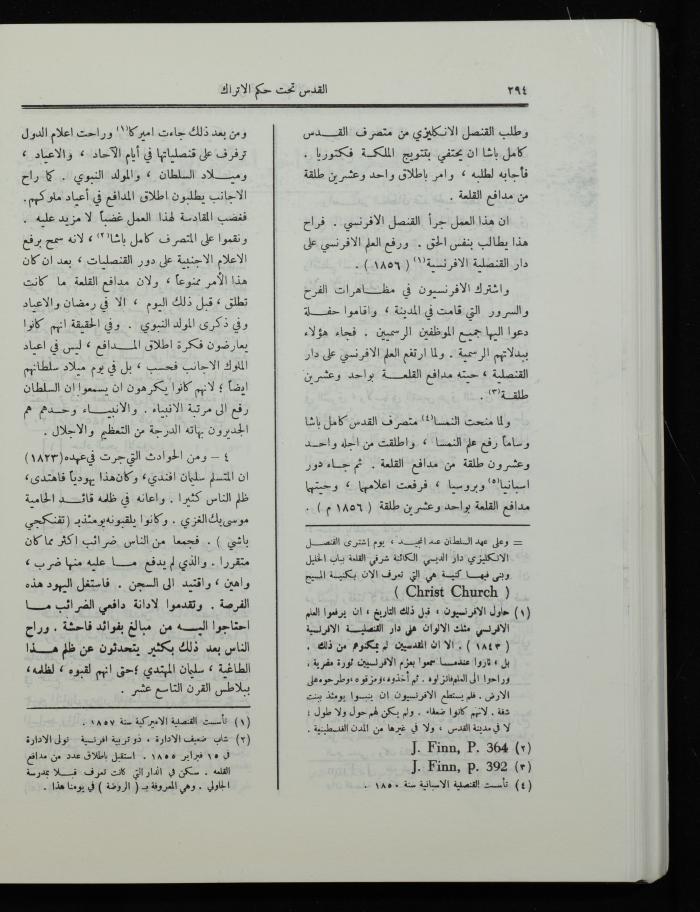 ٢٩٤
القدس تحت حكم الاتراك
وطلب القنصل الانكليزي من متصرف القـــدس
كامل باشا ان يحتفي بتتويج الملكـة فكتوريا .
فأجابه لطلبه ، وامر باطلاق واحد وعشرين طلقة
من مدافع القلعة .
ان هذا العمل جرأ القنصل الافرنسي . فراح
هذا يطالب بنفس الحق . ورفع العلم الافرنسي على
دار القنصلية الافرنسية(١) ( ١٨٥٦ ) .
واشترك الافرنسيون في مظــاهرات الفرح
والسرور التي قامت في المدينة ، واقاموا حفــلة
دعوا اليها جميـع الموظفين الرسميين . فجاء هؤلاء
ببدلاتهم الرسمية . ولما ارتفع العلم الافرنسي على دار
القنصلية ، حيته مدافع القلعــة بواحد وعشرين
طلقـة(٣) .
ولما منحت النمسا(٤) متصرف القدس كامل باشا
وساماً رفع علم النمسا ، واطلقت من اجله واحـد
وعشرون طلقة من مدافع القلعة . ثم جــاء دور
اسبانيا(٥) وبروسيا ، فرفعت اعلامهـا ، وحيتهـا
مدافع القلعة بواحد وعشرين طلقة ( ١٨٥٦ م ) .
= وعلى عهد السلطان عبد المجيـد ، يوم إشترى القنصـل
الانـكليزي دار الديسي الكائنة شرقي القلعة بباب الخليل
وبنى فيهـا كنيـة هي التي تعرف الآن بـكنيـة المسيح
( Christ Church )
(١) حاول الافرنسيون ، قبل ذلك التاريخ ، ان يرفعوا العلم
الافرنسي مثلث الالوان على دار القنصليـــة الافرنسية
( ١٨٤٣ ) . الا ان المقدسيين لم يمكنوهم من ذلك .
بل ، ثاروا عندمــا سمعوا بعزم الافرنسيين ثورة مضرية ،
وراحوا الى العلم فانزلوه . ثم أخذوه ، ومزقوه ، وطرحوه على
الارض . فلم يستطع الافرنسيون ان ينبسوا يومئذ ببنت
شفة . لانهم كانوا ضعفاء . ولم يـكن لهم حول ولا طول ؛
لا في مدينة القدس ، ولا في غيرها من المدن الفلسطينية .
(٢) J. Finn, P. 364
(٣) J. Finn, p. 392
(٤) تأسست القنصلية الاسبانية سنة ١٨٥٠ .
ومن بعد ذلك جاءت اميركا(١) وراحت اعلام الدول
ترفرف على قنصلياتها في أيام الآحاد ، والاعياد ،
وميــــلاد السلطان ، والمولد النبوي . كما راح
الاجانب يطلبون اطلاق المدافع في أعياد ملوكهم.
فغضب المقادسة لهذا العمل غضباً لا مزيد عليه .
ونقموا على المتصرف كامل باشا(٢) ، لانه سمح برفع
الاعلام الاجنبية على دور القنصليات ، بعد ان كان
هذا الأمر ممنوعاً ، ولان مدافع القلعة ما كانت
تطلق ، قبل ذلك اليوم ، الا في رمضان والاعياد
وفي ذكرى المولد النبوي . وفي الحقيقة انهم كانوا
يعارضون فكرة اطلاق المــــدافع ، ليس في اعياد
الملوك الاجانب فحسب ، بل في يوم ميلاد سلطانهم
ايضاً ؛ لانهم كانوا يكرهون ان يسمعوا ان السلطان
رفع الى مرتبة الانبياء . والانبيـــاء وحـدهم هم
الجديرون بهاته الدرجة من التعظيم والاجلال .
٤ – ومن الحوادث التي جرت في عهده (١٨٢٣)
ان المتسلم سليمان افندي، وكان هذا يهودياً فاهتدى،
ظلم الناس كثيرا . واعانه في ظلمه قائــد الحامية
موسى بك الغزي . وكانوا يلقبونه يومئذ بـ (تفنكجي
باشي ) . فجمعا من الناس ضرائب اكثر مما كان
متقررا . والذي لم يدفع مــا عليه منها ضرب ،
واهين ، واقتيد الى السجن . فاستغل اليهود هذه
الفرصة . وتقدموا لادانة دافعي الضرائب مــا
احتاجوا اليــه من مبالغ بفوائد فاحشة . وراح
الناس بعد ذلك بكثير يتحدثون عن ظلم هـــذا
الطاغية ، سليمان المهتدي ؛ حتى انهم لقبوه ، لظلمه ،
ببلاطس القرن التاسع عشر .
(١) تأسست القنصلية الاميركية سنة ١٨٥٧ .
(٢) شاب ضعيف الادارة ، ذو تربية افرنسية . تولى الادارة
في ١٥ فبراير ١٨٥٥ . استقبل باطلاق عدد من مدافع
القلعه . سكن في الدار التي كانت تعرف قبــلا بمدرسة
الجاولي . وهي المعروفة بـ ( الروضة ) في يومنا هذا .